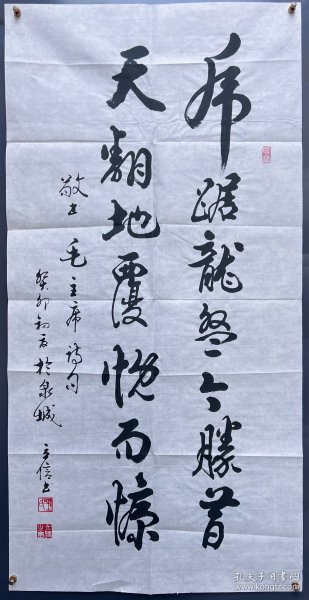 虎踞龙盘今胜昔
天翻地覆慨而慷
敬书毛主席诗句
癸卯初夏於泉城
立信书
孔夫子旧书网